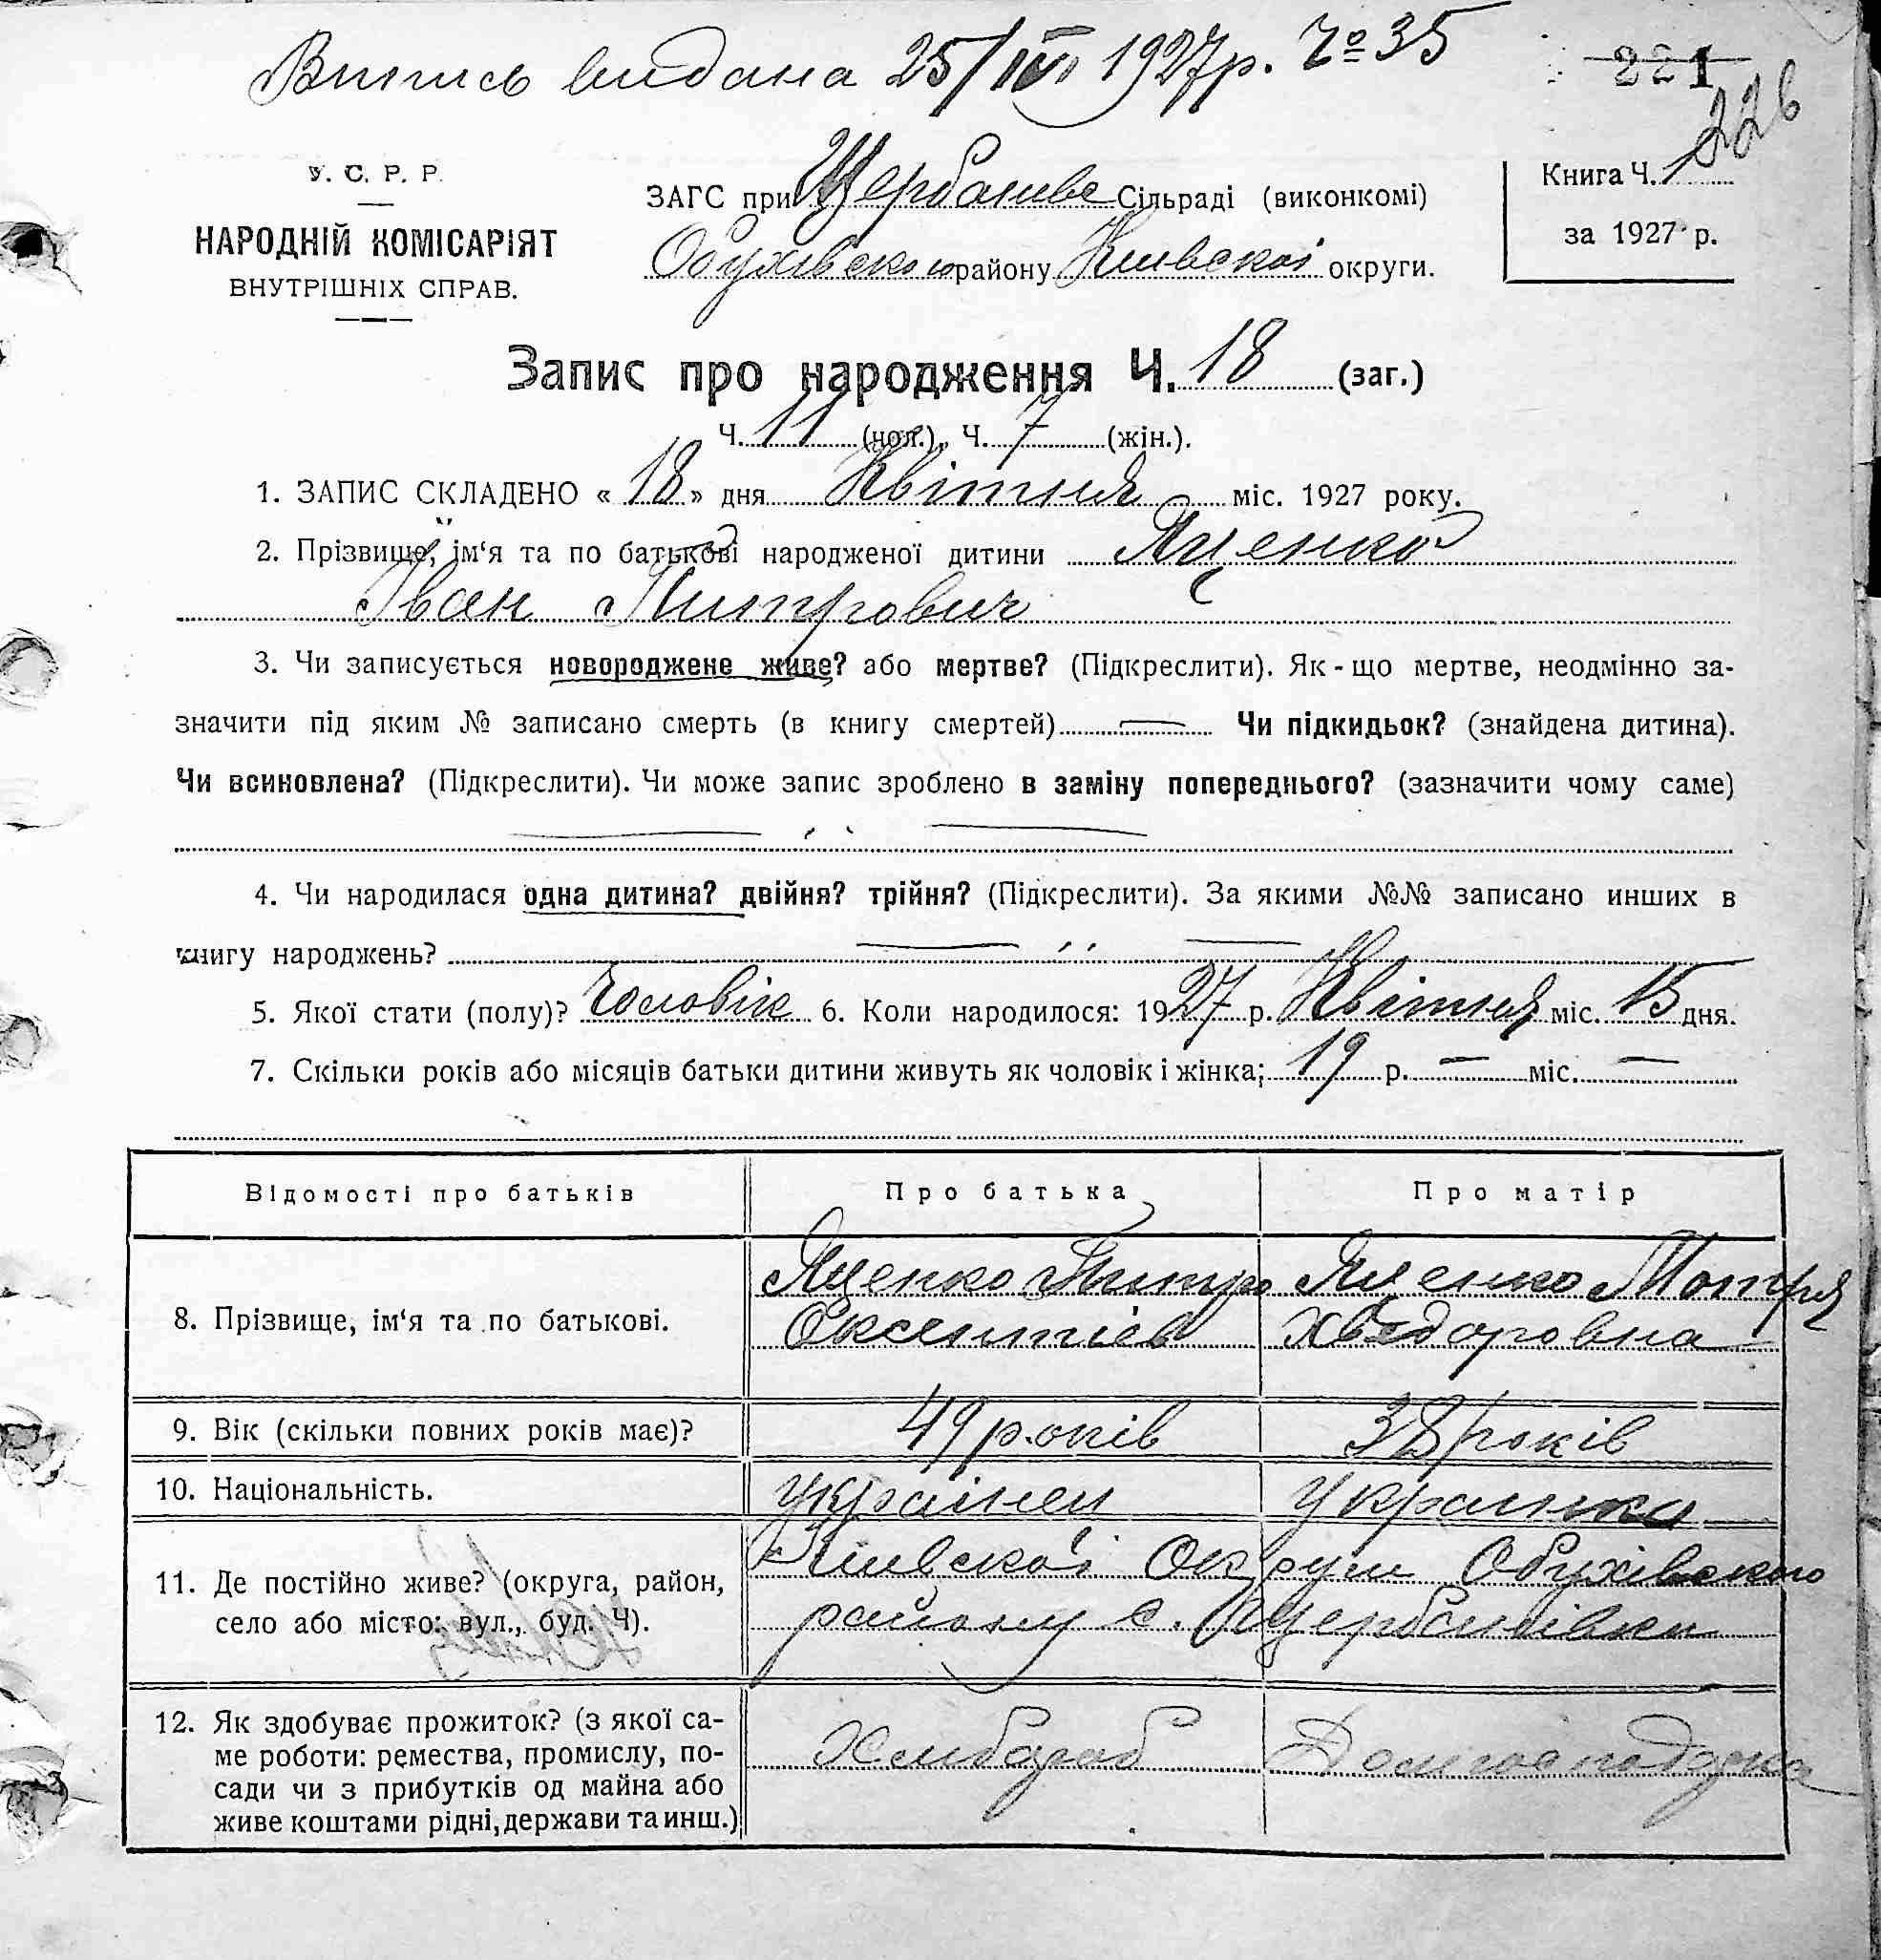 Випись видана 25/IV 1927р. Чо 35
221
226
У. С. Р. Р.
НАРОДНІЙ КОМІСАРІЯТ
ВНУТРІШНІХ СПРАВ.
ЗАГС при Щербанівс Сільраді (виконкомі)
Обухівського району Київскої округи.
Книга Ч. 1
за 1927 р.
Запис про народження Ч. 18 (заг.)
Ч. 11 (чол.), Ч. 7 (жін.).
1. ЗАПИС СКЛАДЕНО « 18 » дня Квітня міс. 1927 року.
2. Прізвище, ім‘я та по батькові народженої дитини Яценко
Іван Митрович
3. Чи записується новороджене живе? або мертве? (Підкреслити). Як-що мертве, неодмінно за-
значити під яким № записано смерть (в книгу смертей) — Чи підкидьок? (знайдена дитина).
Чи всиновлена? (Підкреслити). Чи може запис зроблено в заміну попереднього? (зазначити чому саме)
4. Чи народилася одна дитина? двійня? трійня? (Підкреслити). За якими №№ записано инших в
книгу народжень?
5. Якої стати (полу)? Чоловік 6. Коли народилося: 1927 р. Квітня міс. 15 дня.
7. Скільки років або місяців батьки дитини живуть як чоловік і жінка; 19 р. — міс. —
Відомості про батьків Про батька Про матір
8. Прізвище, ім‘я та по батькові.
Яценко Митро Яценко Мотря
Оксентіев Хведоровна
9. Вік (скільки повних років має)? 49 років 38 років
10. Національність. Українец Украинка
11. Де постійно живе? (округа, район,
село або місто: вул., буд. Ч).
Київскої Округи Обухівского
району с. Щербанівки
12. Як здобуває прожиток? (з якої са-
ме роботи: ремества, промислу, по-
сади чи з прибутків од майна або
живе коштами рідні, держави та инш.)
Хлибороб Домгосподарка